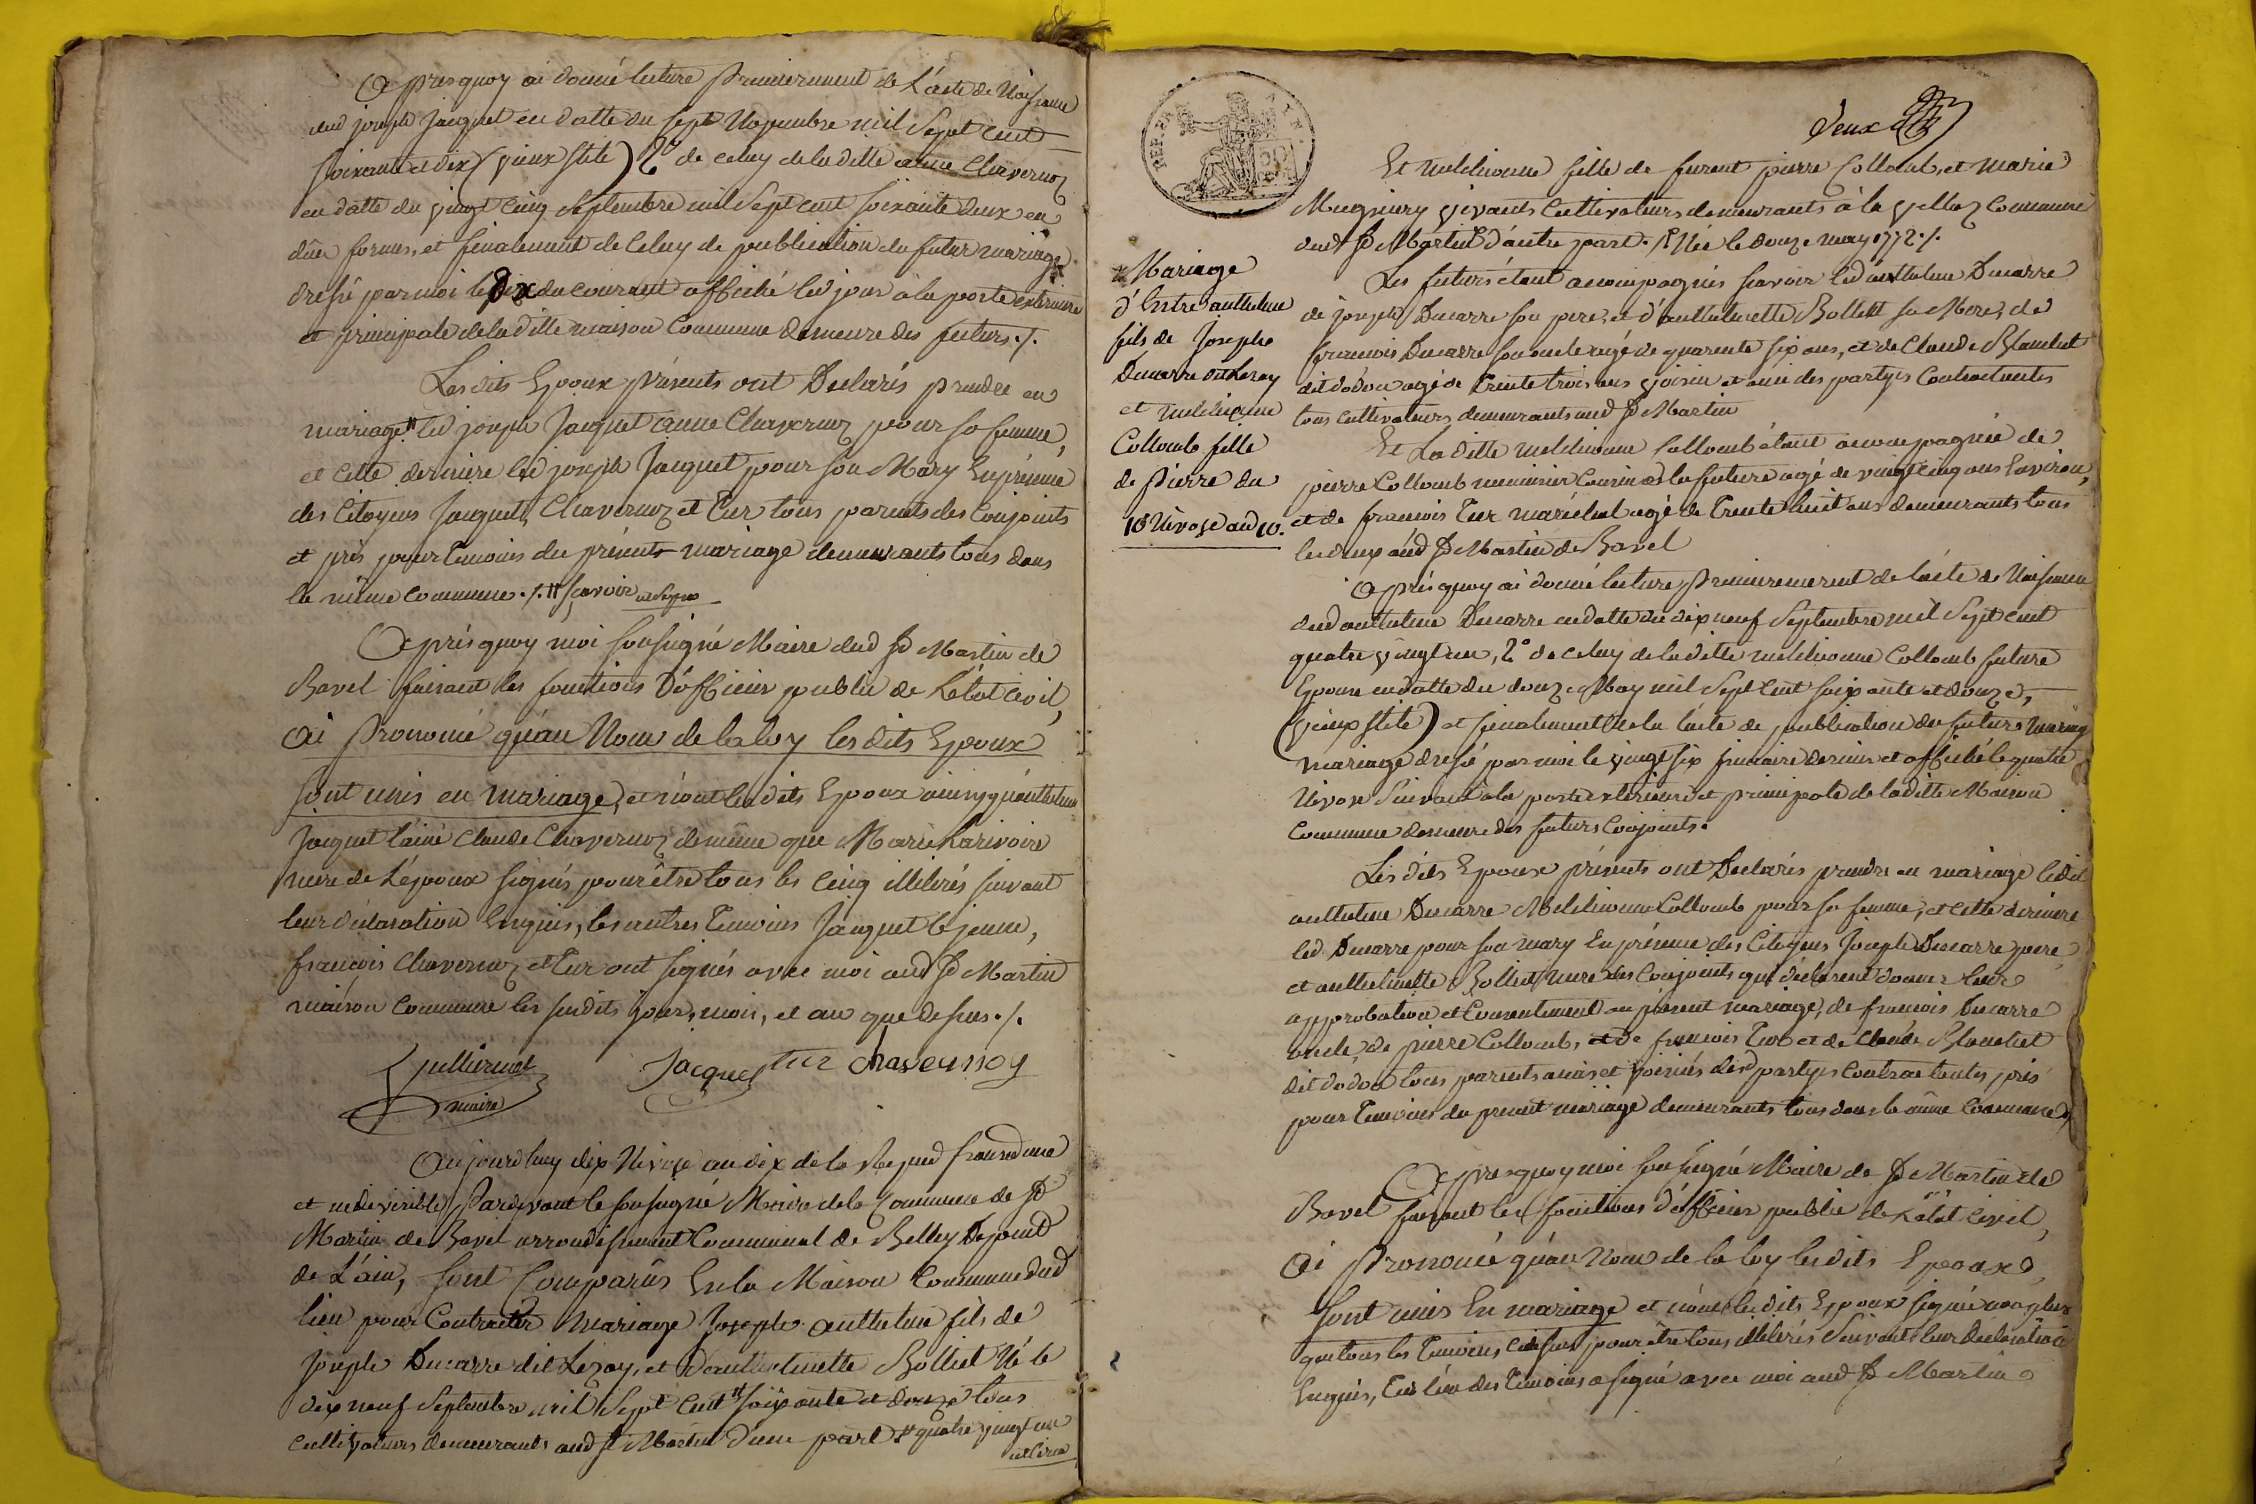 Après quoy ai donné lecture Premierement de L'acte de Naissance
dud joseph Jacquet en datte du sept Novembre mil Sept cent
soixante et dix (vieux stile) 2° de celuy de la ditte anne Chavernoz
en datte du vingt cinq Septembre mil Sept cent soixante deux en
düe forme, et finalement de Celuy de publication du futur mariage
dressé par moi le dix du courant affiché led jour à la porte exterieure
et principale de la ditte maison Commune demeure des futurs ./.
Les dits Epoux présents ont Declarés prendre en
mariage # led joseph Jacquet anne Chavernoz pour sa femme,
et cette derniere led joseph Jacquet pour son Mary En présence
des Citoyens Jacquet, Chavernoz et Tur tous parents des Conjoints
et pris pour temoins du présent mariage demeurants tous dans
la même Commune ./. # sçavoir
Après quoy moi soussigné Maire dud St Martin de
Bavel faisant les fonctions D'officier public de L'état Civil,
ai Prononcé qu'au Nom de la loy les dits Epoux
sont unis en mariage, et n'ont les dits Epoux ainsy qu'anthelme
Jacquet l'ainé Claude Chavernoz de même que Marie Larivoire
mere de L'époux signés pour être tous les Cinq illiterés suivant
leur déclaration Enquis, les autres Temoins Jacquet le jeune,
françois Chavernoz et Tur ont signés avec moi aud St Martin
maison Commune les susdits jour, mois, et an que dessus ./.
Jullierat
maire
Jacquet
tur
chavernoy
Aujourd'huy dix Nivose an dix de la Repud française une
et indivisible, Pardevant le soussigné Maire de la Commune de St
Martin de Bavel arrondissement Communal de Belley Depemt
de L'ain, sont Comparûs En la Maison Commune dud
lieu pour Contracter Mariage Joseph anthelme fils de
Joseph Ducarre dit Lezay, et d'anthelmette Bolliet Né le
dix neuf Septembre mil Sept Cent # soixante et douze tous
Cultivateurs demeurants aud St Martin d'une part # quatre vingt un
deux
REP. FRA.
Et melchionne fille de furent pierre Collomb, et marie
Mugniery vivants Cultivateurs demeurants à la Commune
dud St Martin d'autre part. Née le douze may 1772 ./.
* Mariage
d'Entre anthelme
fils de Joseph
Ducarre dit Lezay
et melchionne
Collomb fille
de Pierre du
10 Nivose an 10.
Les futurs étant accompagnés sçavoir led anthelme Ducarre
de joseph Ducarre son pere, et d'anthelmette Bolliet sa Mere, de
francois Ducarre son oncle agé de quarente six ans, et de Claude Blanchet
dit dodon agé de Trente trois ans voisin et ami des partyes Contractantes
tous cultivateurs demeurants aud St Martin
Et La ditte melchionne Collomb étant accompagnée de
pierre Collomb menuisier Cousin de la future agé de vingt cinq ans Environ,
et de francois Tur maréchal agé de Trente huit ans demeurants tous
les deux aud St Martin de Bavel
Après quoy ai donné lecture Premierement de l'acte de Naissance
dud anthelme Ducarre en datte du dix neuf Septembre mil Sept cent
quatre vingt un, 2° de celuy de la ditte melchionne Collomb future
Epouse en datte du douze May mil Sept Cent soixante et douze,
(vieux stile) et finalement de l'acte de publication du futur mariage
mariage dressé par moi le vingt six frimaire dernier et affiché le quatre
Nivose Suivant à la porte exterieure et principale de la ditte Maison
Commune demeure des futurs Conjoints.
Les dits Epoux présents ont Declarés prendre en mariage ledit
anthelme Ducarre Melchionne Collomb pour sa femme, et cette derniere
led Ducarre pour son mary En présence des Citoyens Joseph Ducarre pere,
et anthelmette Bolliet Mere des Conjoints qui déclarent donner leur
approbation et Consentement au présent mariage, de francois Ducarre
oncle, de pierre Collomb, et de francois Tur et de Claude Blanchet
dit dodon tous parents amis et voisins des partyes Contractantes pris
pour Temoins du present mariage demeurants tous dans la même Commune
Après quoy moi soussigné Maire de St Martin de
Bavel faisant les fonctions d'officier public de L'état Civil,
ai Prononcé qu'au Nom de la loy les dits Epoux
sont unis En mariage et n'ont les dits Epoux signé non plus
que tous les Temoins cidessus pour être tous illiterés Suivant leur déclaration
Enquis, Tur l'un des Temoins a signé avec moi aud St Martin